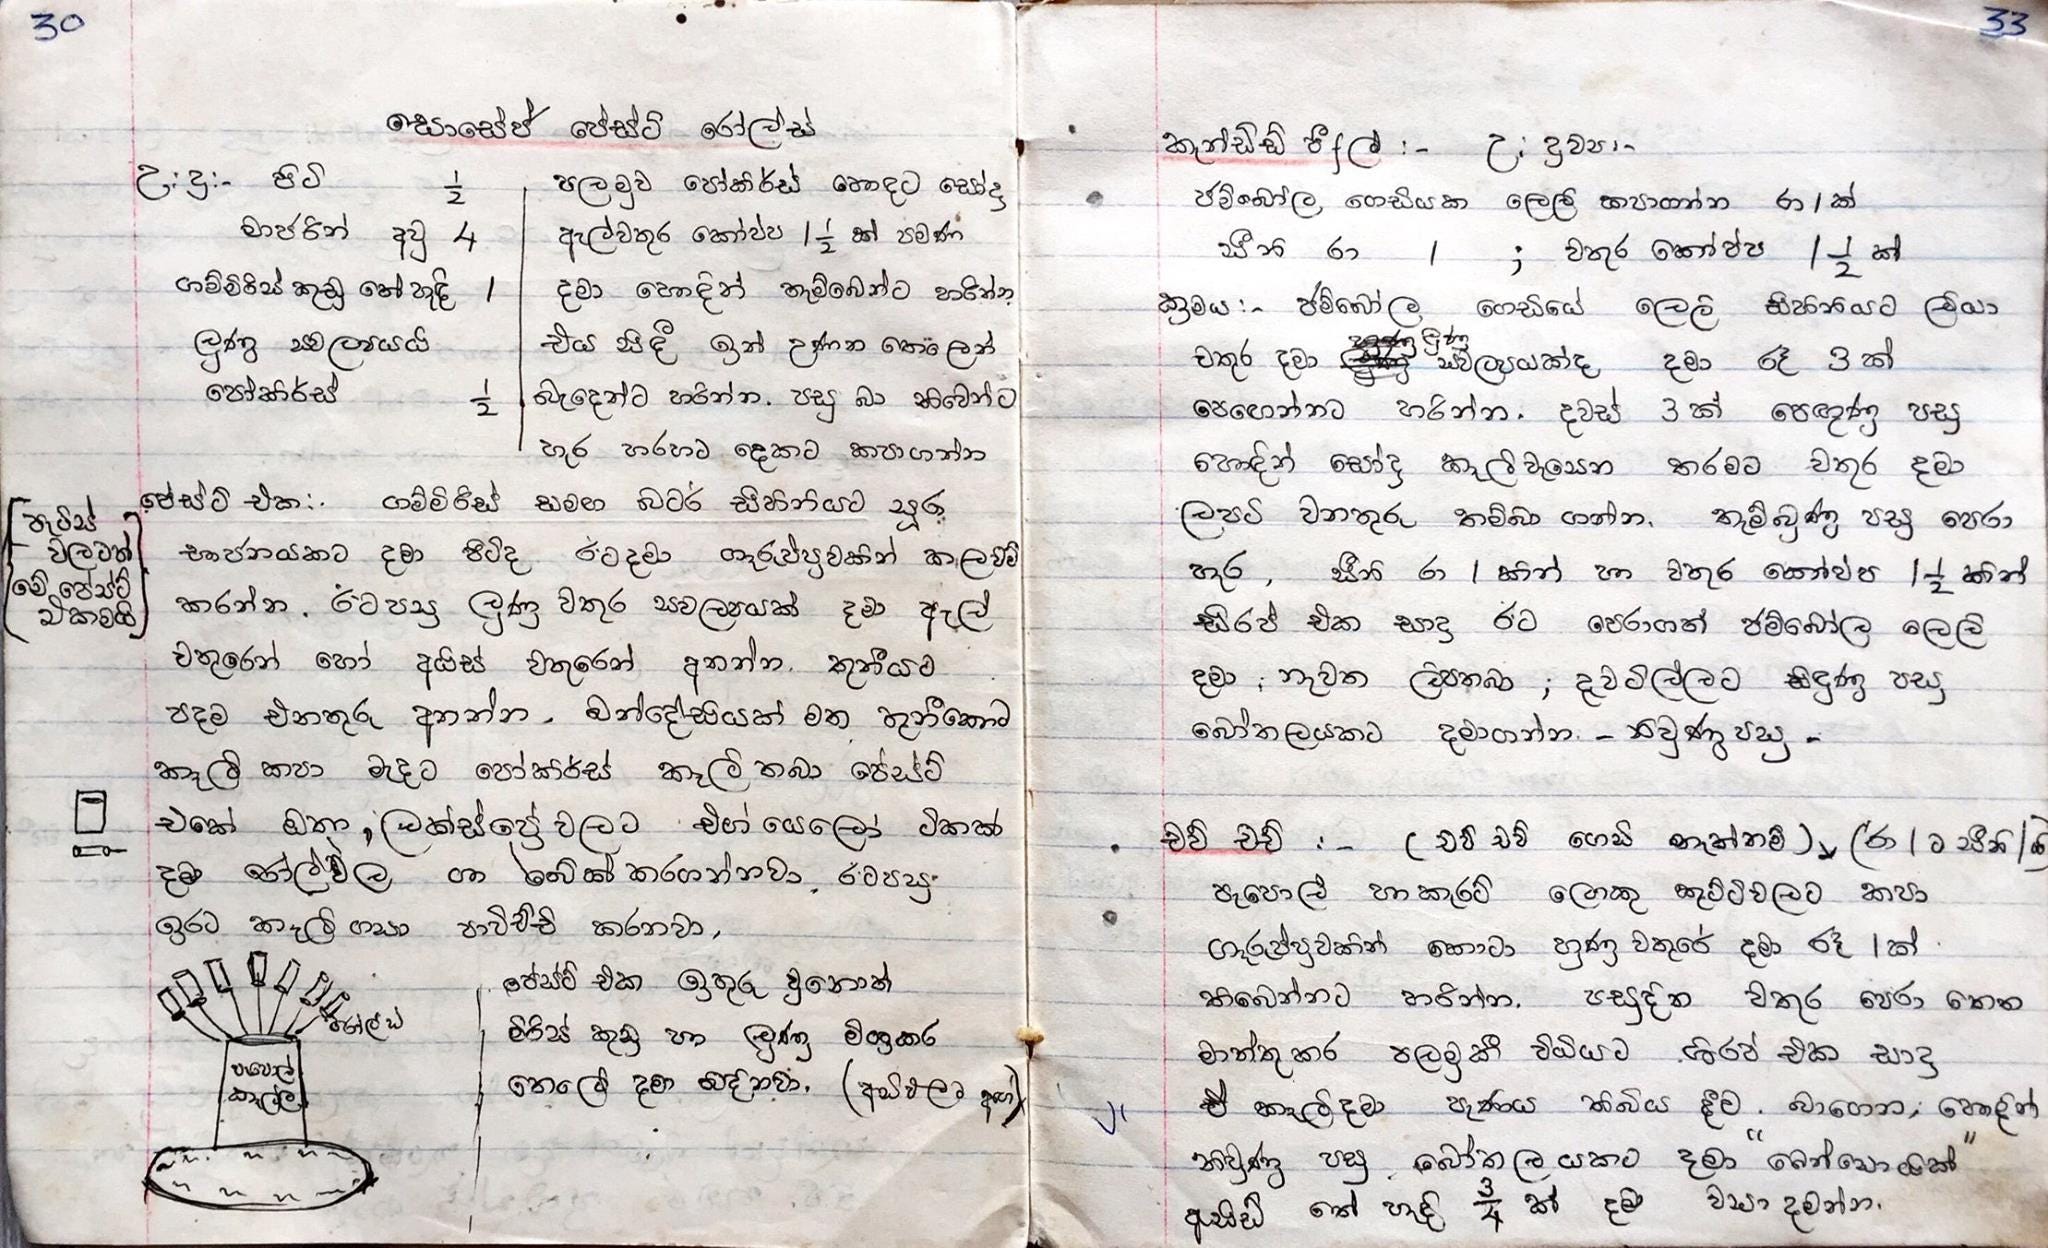 30
සොසේජ් පේස්ට්‍රි රෝල්ස්
උ: ද්‍ර:- පිටි ½
මාජරින් අවු 4
ගම්මිරිස් කුඩු තේ හැඳි 1
ලුණු ස්වල්පයයි
පෝකිර්ස් ½
පලමුව පෝකිර්ස් හොඳට සෝදා
ඇල්වතුර කෝප්ප 1½ ක් පමණ
දමා හොඳින් තැම්බෙන්ට හරින්න
එය සිඳී ඉන් උණන තෙලෙන්
බැදෙන්ට හරින්න. පසු බා නිවෙන්ට
හැර හරහට දෙකට කපාගන්න
පේස්ට්‍රි එක:- ගම්මිරිස් සමඟ බටර් සිහිනියට සූරා
භාජනයකට දමා පිටිද ඊට දමා ගෑරුප්පුවකින් කලවම්
කරන්න. ඊට පසු ලුණු වතුර ස්වල්පයක් දමා ඇල්
වතුරෙන් හෝ අයිස් වතුරෙන් අනන්න. තුනීයට
පදම එනතුරු අනන්න. බන්දේසියක් මත තුනීකොට
කෑලි කපා මැදට පෝකිර්ස් කෑලි තබා පේස්ට්‍රි
එකේ ඔතා, ලක්ස්ප්‍රේ වලට එග් යෙලෝ ටිකක්
දමා රෝල්වල ගා බේක් කරගන්නවා. ඊටපසු
ඉරට කෑලි ගසා පාවිච්චි කරනවා,
පැටිස්
වලටත්
මේ පේස්ට්‍රි
එකමයි
රෝල්ස්
පැපොල්
කෑල්ල
පේස්ට්‍රි එක ඉතුරු වුනොත්
මිරිස් කුඩු හා ලුණු මිශ්‍රකර
තෙලේ දමා බදිනවා.
33
කැන්ඩිඩ් පීල් :- උ: ද්‍රව්‍ය:-
ජම්බෝල ගෙඩියක ලෙලි කපාගන්න රා 1 ක්
සීනි රා 1 ; වතුර කෝප්ප 1½ ක්
ක්‍රමය:- ජම්බෝල ගෙඩියේ ලෙලි සිහිනියට ලියා
වතුර දමා ලුණු ස්වල්පයක්ද දමා රෑ 3 ක්
පෙඟෙන්නට හරින්න. දවස් 3 ක් පෙඟුණු පසු
හොඳින් සෝදා කෑලි වැසෙන තරමට වතුර දමා
ලපටි වනතුරු තම්බා ගන්න. තැම්බුණු පසු පෙරා
හැර, සීනි රා 1 කින් හා වතුර කෝප්ප 1½ කින්
සිරප් එක සාදා ඊට පෙරාගත් ජම්බෝල ලෙලි
දමා ; නැවත ලිප තබා ; දැවටිල්ලට සිඳුණු පසු
බෝතලයකට දමාගන්න - නිවුණු පසු -
චව් චව් :- ( චව් චව් ගෙඩි නැත්නම් ) (රා 1 ට සීනි 1යි)
පැපොල් හා කැරට් ලොකු කැට්ටිවලට කපා
ගෑරුප්පුවකින් කොටා හුණු වතුරේ දමා රෑ 1 ක්
තිබෙන්නට හරින්න. පසුදින වතුර පෙරා තෙත
මාත්තු කර පලමුකී විධියට සිරප් එක සාදා
ඒ කෑලි දමා පැණිය තිබිය දීම. බාගෙන, හොඳින්
නිවුණු පසු බෝතලයකට දමා "බෙන්සොයික්"
ඇසිඩ් තේ හැඳි ¾ ක් දමා වසා දමන්න.